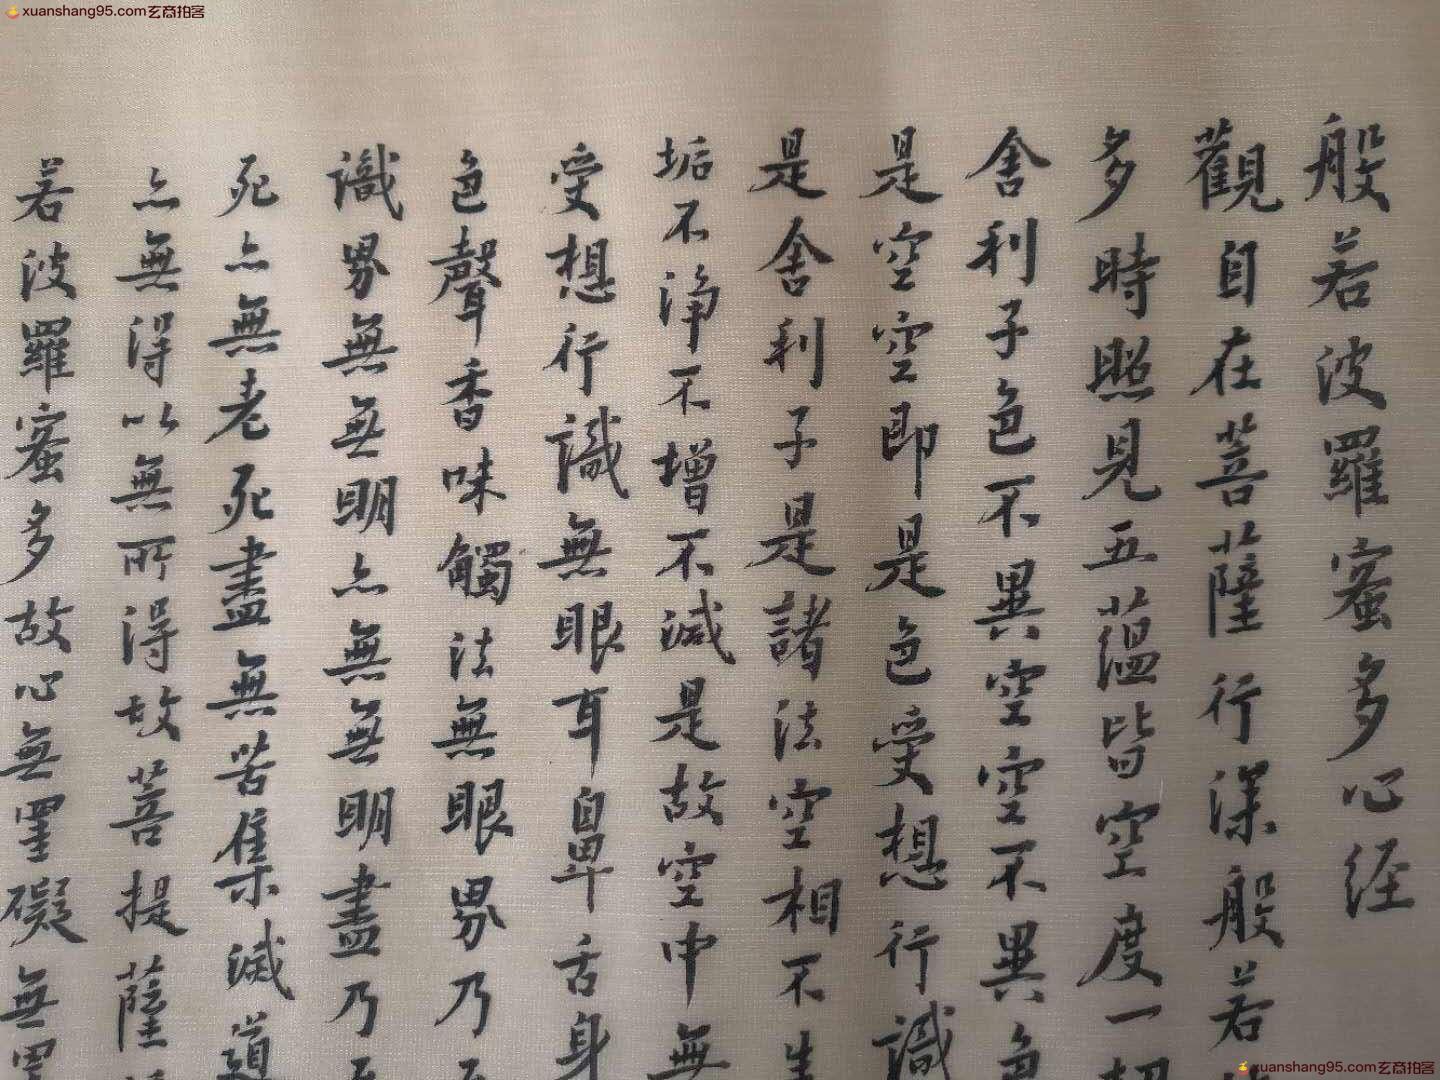 xuanshang95.com玄商拍客
般若波羅蜜多心经
觀自在菩薩行深般若
多時照見五蘊皆空度一切
舍利子色不異空空不異色
是空空即是色受想行識
是舍利子是諸法空相不生
垢不淨不增不減是故空中無
受想行識無眼耳鼻舌身
色聲香味觸法無眼界乃
識界無無明亦無無明盡乃
死亦無老死盡無苦集滅道
亦無得以無所得故菩提薩
若波羅蜜多故心無罣礙無罣
xuanshang95.com玄商拍客